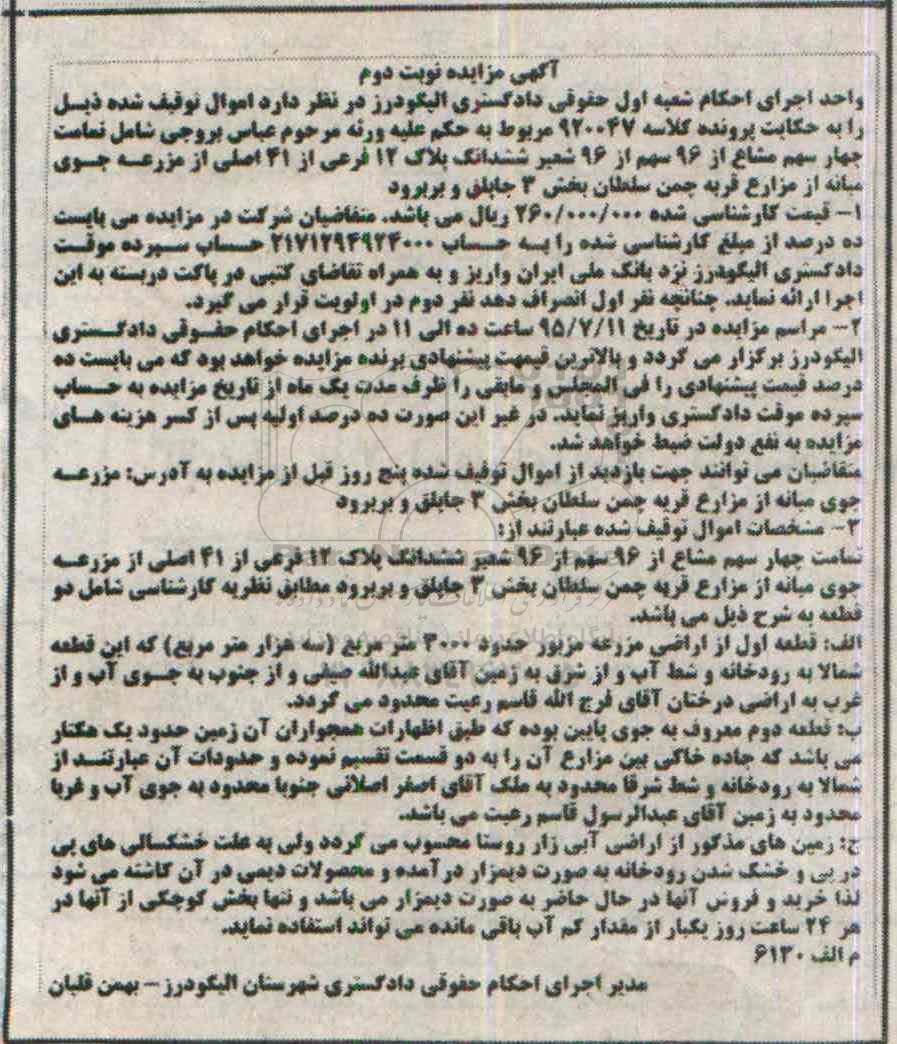 آگهی مزایده نوبت دوم
واحد اجرای احکام شعبه اول حقوقی دادگستری الیگودرز در نظر دارد اموال توقیف شده ذیل
را به حکایت پرونده کلاسه ۹۲۰۰۴۷ مربوط به حکم علیه ورثه مرحوم عباس بروجی شامل تمامت
چهار سهم مشاع از ۹۶ سهم از ۹۶ شعیر ششدانگ پلاک ۱۲ فرعی از ۴۱ اصلی از مزرعه جوی
میانه از مزارع قریه چمن سلطان بخش ۳ جاپلق و بربرود
۱- قیمت کارشناسی شده ۲۶۰/۰۰۰/۰۰۰ ریال می باشد. متقاضیان شرکت در مزایده می بایست
ده درصد از مبلغ کارشناسی شده را به حساب ۲۱۷۱۲۹۴۹۲۴۰۰۰ حساب سپرده موقت
دادگستری الیگودرز نزد بانک ملی ایران واریز و به همراه تقاضای کتبی در پاکت دربسته به این
اجرا ارائه نماید. چنانچه نفر اول انصراف دهد نفر دوم در اولویت قرار می گیرد.
۲- مراسم مزایده در تاریخ ۹۵/۷/۱۱ ساعت ده الی ۱۱ در اجرای احکام حقوقی دادگستری
الیگودرز برگزار می گردد و بالاترین قیمهت پیشنهادی برنده مزایده خواهد بود که می بایست ده
درصد قیمت پیشنهادی را فی المجلس و مابقی را ظرف مدت یک ماه از تاریخ مزایده به حساب
سپرده موقت دادگستری واریز نماید. در غیر این صورت ده درصد اولیه پس از کسر هزینه های
مزایده به نفع دولت ضبط خواهد شد.
متقاضیان می توانند جهت بازدید از اموال توقیف شده پنج روز قبل از مزایده به آدرس: مزرعه
جوی میانه از مزارع قریه چمن سلطان بخش ۳ جاپلق و بربرود
۳- مشخصات اموال توقیف شده عبارتند از:
تمامت چهار سهم مشاع از ۹۶ سهم از ۹۶ شعیر ششدانگ پلاک ۱۲ فرعی از ۴۱ اصلی از مزرعه
جوی میانه از مزارع قریه چمن سلطان بخش ۳ جاپلق و بربرود مطابق نظریه کارشناسی شامل دو
قطعه به شرح ذیل می باشد.
الف: قطعه اول از اراضی مزرعه مزبور حدود ۳۰۰۰ متر مربع (سه هزار متر مربع) که این قطعه
شمالا به رودخانه و شط آب و از شرق به زمین آقای عبدالله صیفی و از جنوب به جوی آب و از
غرب به اراضی درختان آقای فرج الله قاسم رعیت محدود می گردد.
ب: قطعه دوم معروف به جوی پایین بوده که طبق اظهارات همجواران آن زمین حدود یک هکتار
می باشد که جاده خاکی بین مزارع آن را به دو قسمت تقسیم نموده و حدودات آن عبارتند از
شمالا به رودخانه و شط شرقا محدود به ملک آقای اصغر اصلانی جنوبا محدود به جوی آب و غربا
محدود به زمین آقای عبدالرسول قاسم رعیت می باشد.
ج: زمین های مذکور از اراضی آبی زار روستا محسوب می گردد ولی به علت خشکسالی های پی
در پی و خشک شدن رودخانه به صورت دیمزار در آمده و محصولات دیمی در آن کاشته می شود
لذا خرید و فروش آنها در حال حاضر به صورت دیمزار می باشد و تنها بخش کوچکی از آنها در
هر ۲۴ ساعت روز یکبار از مقدار کم آب باقی مانده می تواند استفاده نماید.
م الف ۶۱۳۰
مدیر اجرای احکام حقوقی دادگستری شهرستان الیگودرز - بهمن قلیان